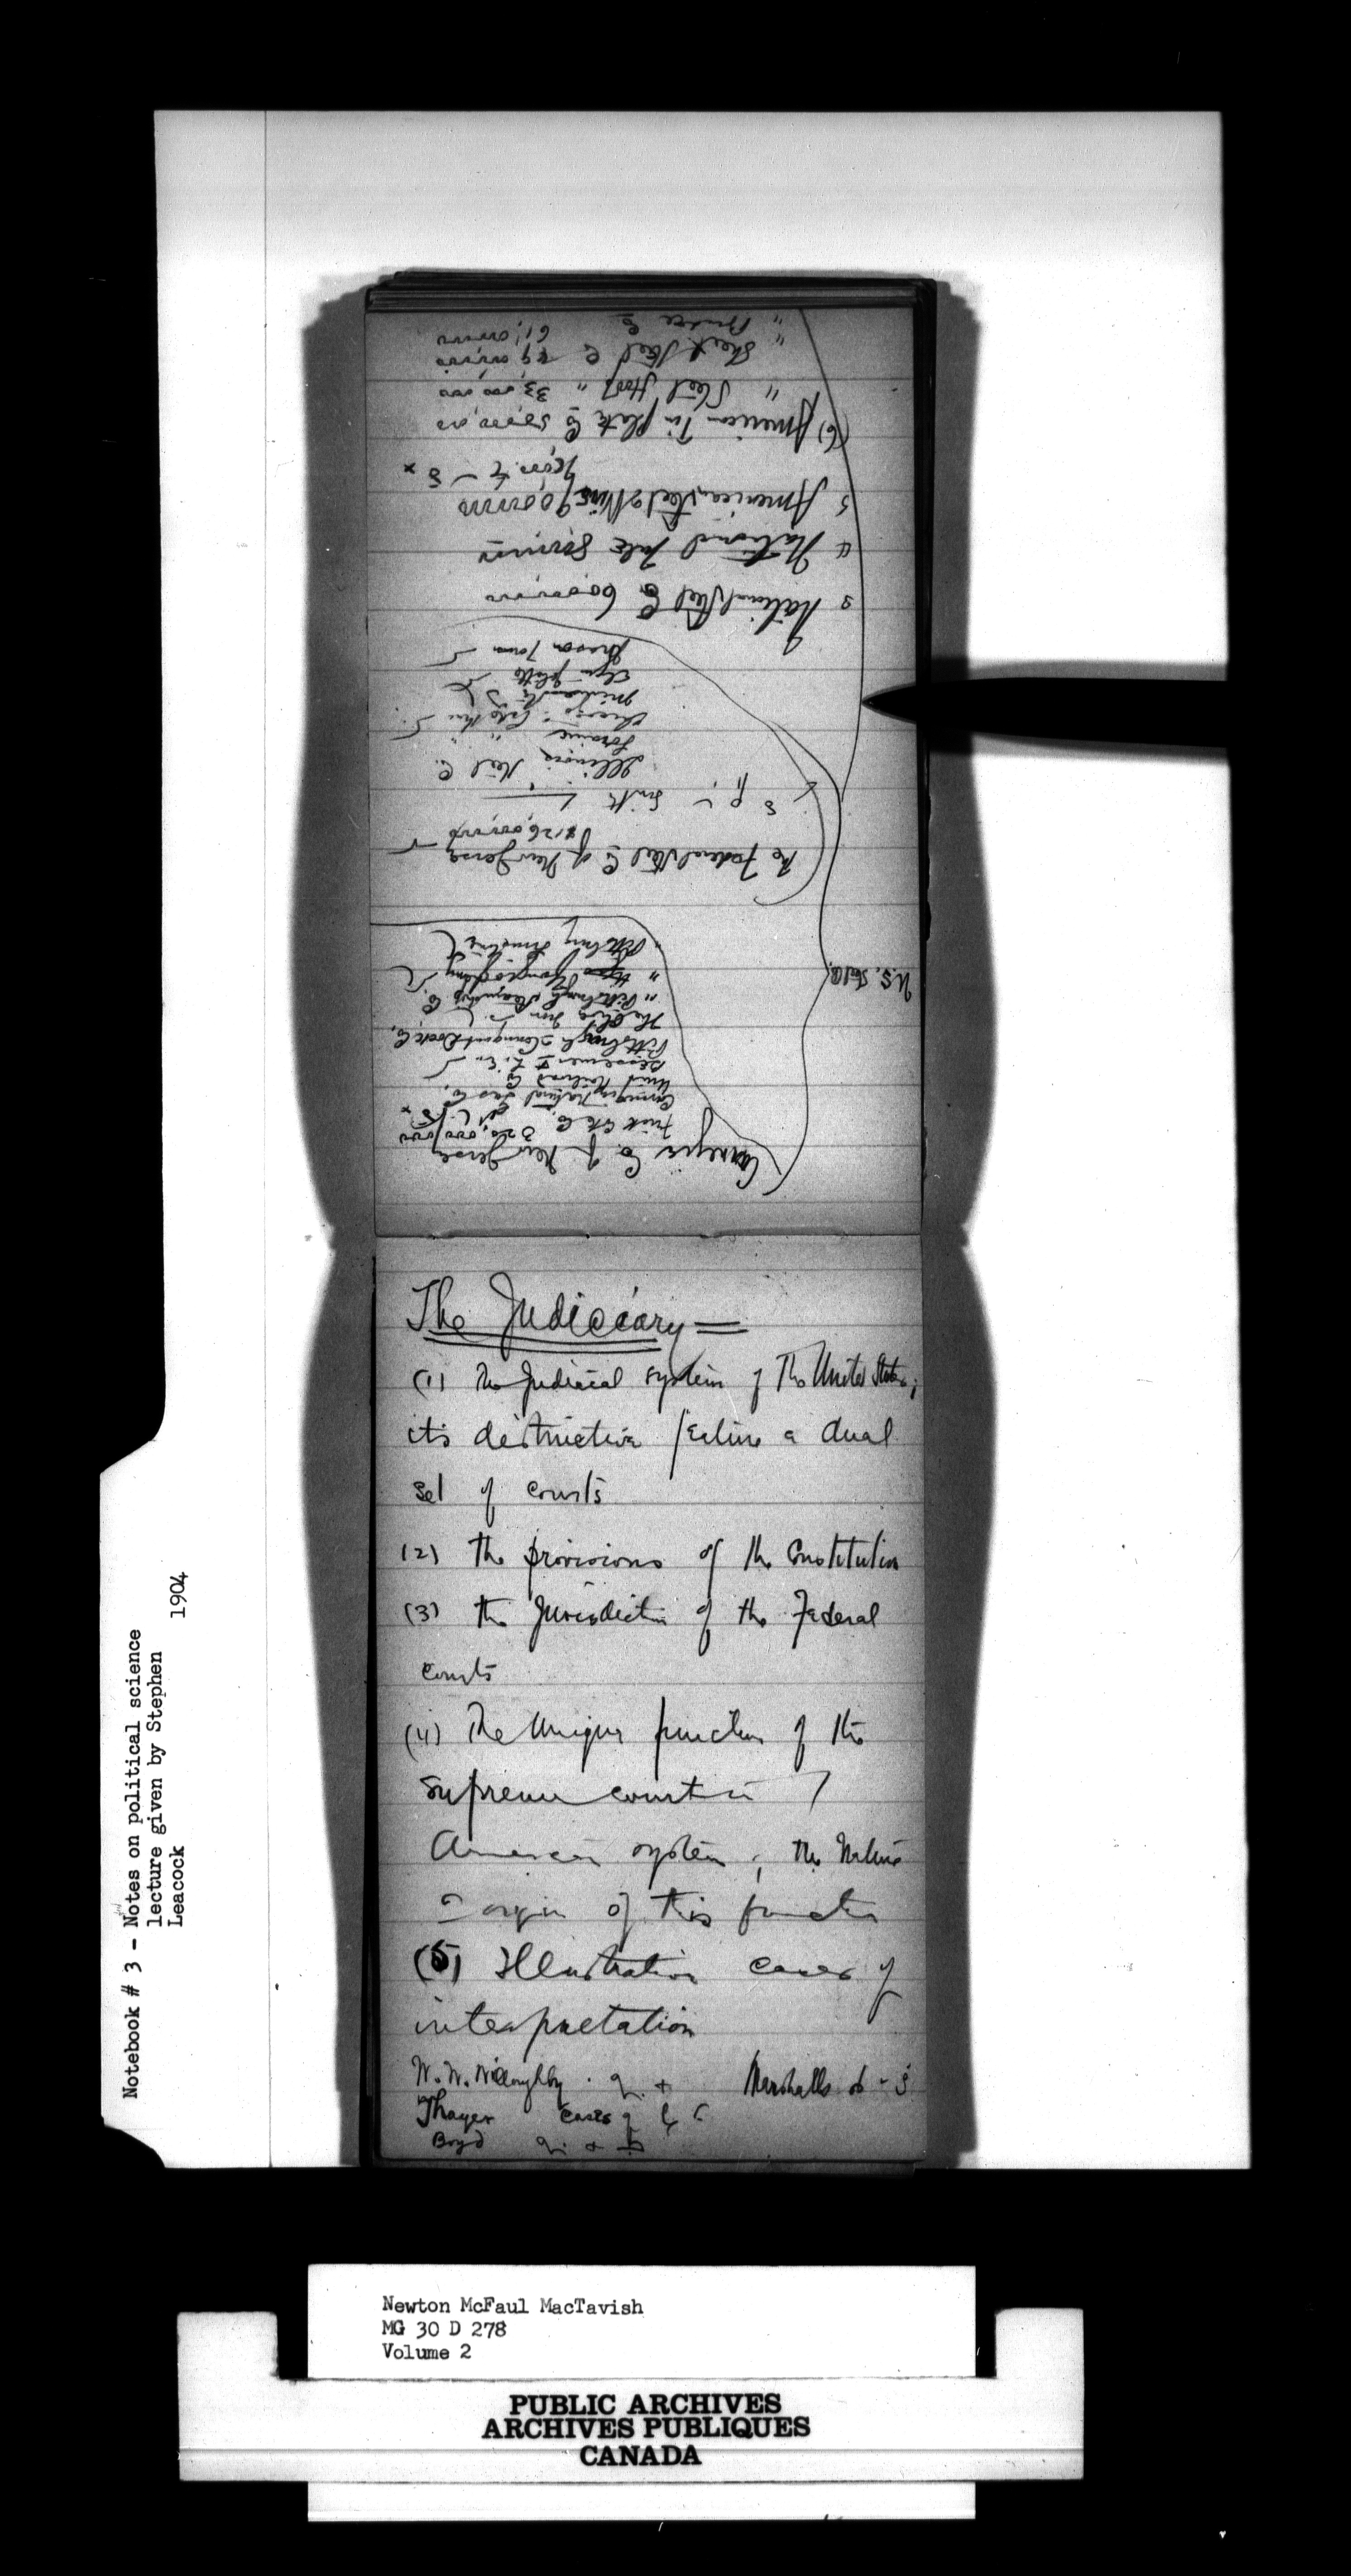 Carnegie Co of New Jersey
Frick Coke Co. 320,000,000
Carnegie Natural Gas Co.
Union Railroad Co
Bessemer & L. Erie
Pittsburgh & Conneaut Dock Co.
The Oliver Iron
" Pittsburgh Steamship Co.
" Youghiogheny
" Pittsburg Limestone
U.S. Steel Co.
The Federal Steel Co of New Jersey
$126,000,000
Illinois Steel C.
Lorain " "
3 National Steel Co 60,000,000
4 National Tube 80,000,000
5 American Steel & Wire 90,000,000
(6) American Tin plate Co 50,000,000
" Steel Hoop " 33,000,000
" Sheet Steel C 49,000,000
" Bridge Co 61,000,000
The Judiciary =
(1) The Judicial system of The United States;
its distinctive feature a dual
set of courts
(2) the provisions of the Constitution
(3) the Jurisdiction of the Federal
courts
(4) The Unique function of the
Supreme court in
American system; the Nature
& origin of this function
(5) Illustrative cases of
interpretation
W. W. Willoughby Marshalls
Thayer cases of
Boyd
Notebook # 3 - Notes on political science
lecture given by Stephen
Leacock 1904
Newton McFaul MacTavish
MG 30 D 278
Volume 2
PUBLIC ARCHIVES
ARCHIVES PUBLIQUES
CANADA